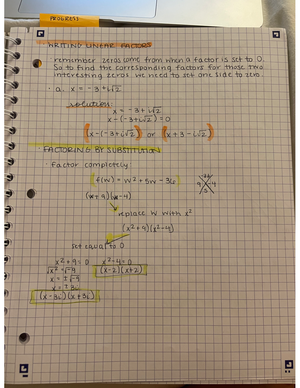 PROGRESS
WRITING LINEAR FACTORS
remember zeros come from when a factor is set to 0.
So to find the corresponding factors for these two
interesting zeros we need to set one side to zero.
a. x = -3 + i√2
solution:
x = -3 + i√2
x - (-3 + i√2) = 0
(x - (-3 + i√2)) or (x + 3 - i√2)
FACTORING BY SUBSTITUTION
factor completely
f(w) = w² + 5w - 36
-36
9 -4
5
(w + 9)(w - 4)
replace w with x²
(x² + 9)(x² - 4)
set equal to 0
x² + 9 = 0 x² - 4 = 0
√x² √-9 (x - 2)(x + 2)
x = ±√-9
x = ± 3i
(x - 3i)(x + 3i)